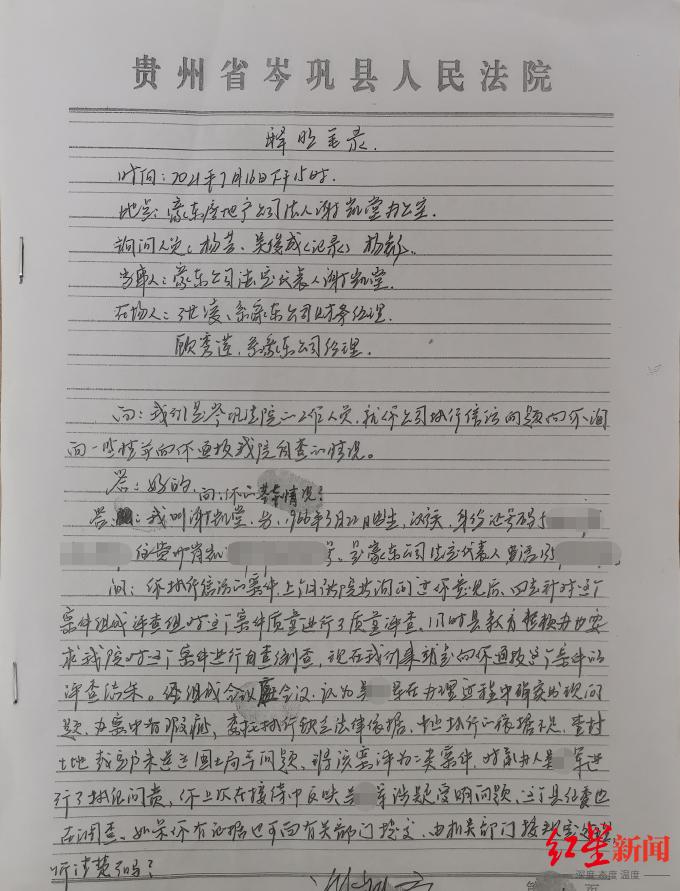 贵州省岑巩县人民法院
释明笔录.
时间:2021年7月16日下午15时.
地点:豪东房地产公司法人谢凯堂办公室.
询问人员:杨芸、吴俊成(记录)杨
当事人:豪东公司法定代表人谢凯堂.
在场人: 系豪东公司财务经理.
顾秀莲,系豪东公司经理.
问:我们是岑巩法院的工作人员,就你公司执行信访问题向你询
问一些情况并向你通报我院自查的情况。
答:好的,问:你的基本情况?
答:我叫谢凯堂,男,1966年3月22日出生,汉族,身份证号码5
住贵州省凯 号,是豪东公司法定代表人 电话135
问:你执行信访的案件,上回法院询问过你意见后,回去针对这个
案件组成评查组对这个案件质量进行了质量评查,同时县教育整顿办也要
求我院对这个案件进行自查倒查,现在我们来就是向你通报这个案件的
评查结果。经组成合议庭会议,认为吴 军在办理过程中确实出现问
题,办案中有瑕疵,委托执行缺乏法律依据,中止执行的依据不足,查封
土地裁定书未送达国土局等问题,将该案评为二类案件,对承办人吴 军进
行了执纪问责,你上次在接待中反映吴 军涉嫌受贿问题,这个县纪委也
在调查,如果你有证据也可向有关部门提交,由相关部门接
听清楚了吗?
红星新闻
深度 态度 温度
第 页